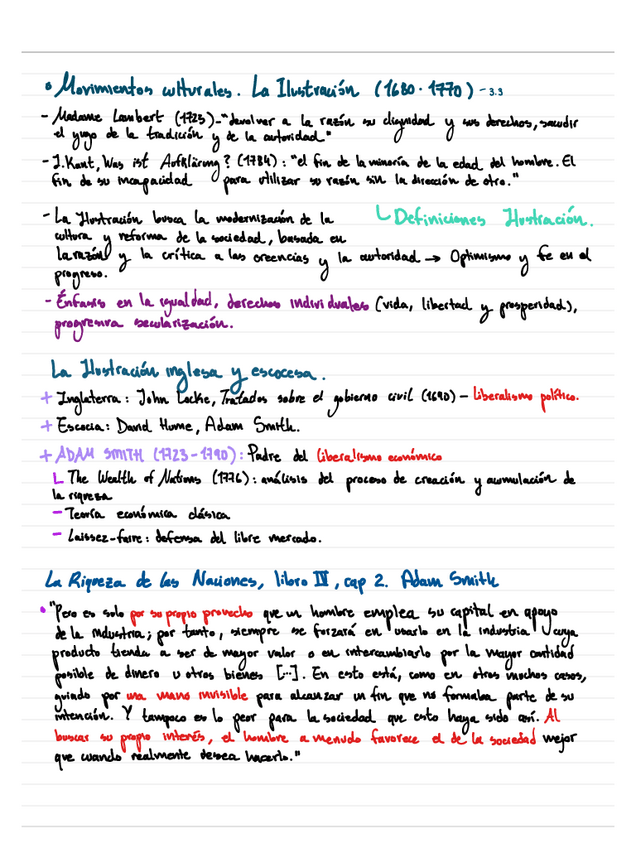 • Movimientos culturales. La Ilustración (1680-1770) - 3.3
- Madame Lambert (1725)-"devolver a la razón su dignidad y sus derechos, sacudir
el yugo de la tradición y de la autoridad"
- J.Kant, Was ist Aufklärung? (1784): "el fin de la minoría de la edad del hombre. El
fin de su incapacidad para utilizar su razón sin la dirección de otro."
- La Ilustración busca la modernización de la
cultura y reforma de la sociedad, basada en
la razón y la crítica a las creencias y la autoridad → Optimismo y fe en el
progreso.
Definiciones Ilustración.
- Énfasis en la igualdad, derechos individuales (vida, libertad y prosperidad),
progresiva secularización.
La Ilustración inglesa y escocesa.
+ Inglaterra: John Locke, Tratados sobre el gobierno civil (1690) - liberalismo político.
+ Escocia: David Hume, Adam Smith.
+ ADAM SMITH (1723-1790): Padre del liberalismo económico
The Wealth of Nations (1776): análisis del proceso de creación y acumulación de
la riqueza
- Teoría económica clásica
- Laissez-faire: defensa del libre mercado.
La Riqueza de las Naciones, libro IV, cap 2. Adam Smith
• "Pero es solo por su propio provecho que un hombre emplea su capital en apoyo
de la industria; por tanto, siempre se forzará en usarlo en la industria cuyo
producto tienda a ser de mayor valor o en intercambiarlo por la mayor cantidad
posible de dinero u otros bienes [...]. En esto está, como en otros muchos casos,
guiado por una mano invisible para alcanzar un fin que no formaba parte de su
intención. Y tampoco es lo peor para la sociedad que esto haya sido así. Al
buscar su propio interés, el hombre a menudo favorece el de la sociedad mejor
que cuando realmente desea hacerlo."